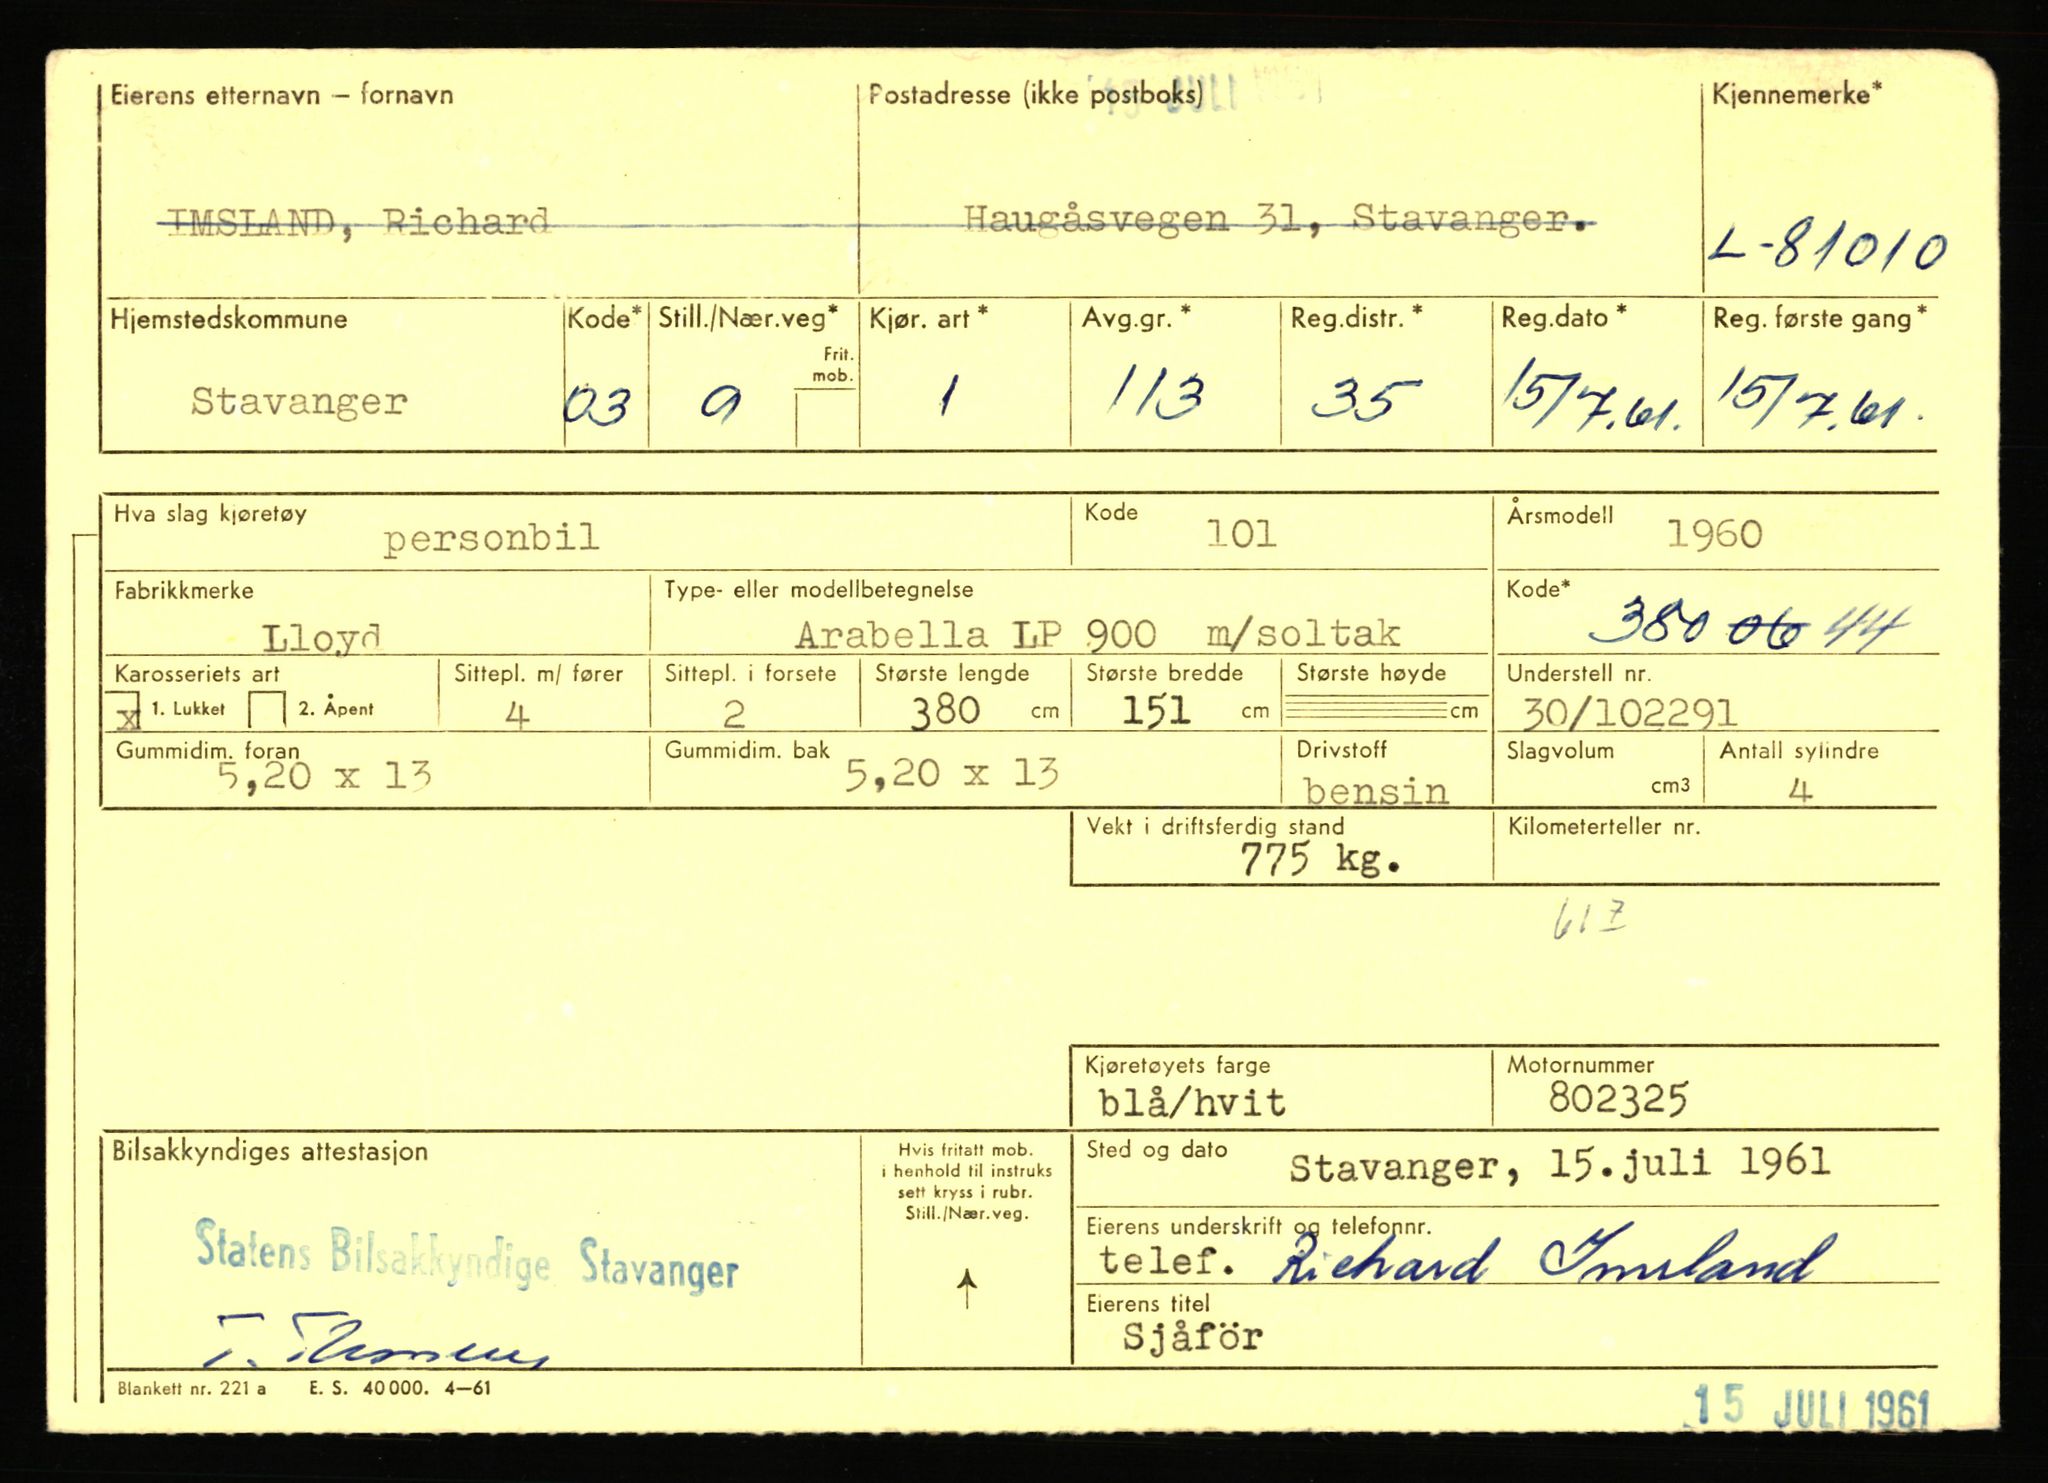 Eierens etternavn – fornavn
Postadresse (ikke postboks)
JULI
Kjennemerke*
IMSLAND, Richard
Haugåsvegen 31, Stavanger.
L-81010
Hjemstedskommune
Kode*
Still./Nær.veg*
Frit. mob.
Kjør. art *
Avg.gr. *
Reg.distr. *
Reg.dato *
Reg. første gang *
Stavanger
03
9
1
113
35
15/7.61.
15/7.61.
Hva slag kjøretøy
personbil
Kode
101
Årsmodell
1960
Fabrikkmerke
Lloyd
Type- eller modellbetegnelse
Arabella LP 900 m/soltak
Kode*
380 06 44
Karosseriets art
x 1. Lukket 2. Åpent
Sittepl. m/ fører
4
Sittepl. i forsete
2
Største lengde
380 cm
Største bredde
151 cm
Største høyde
cm
Understell nr.
30/102291
Gummidim. foran
5,20 x 13
Gummidim. bak
5,20 x 13
Drivstoff
bensin
Slagvolum
cm3
Antall sylindre
4
Vekt i driftsferdig stand
775 kg.
Kilometerteller nr.
Kjøretøyets farge
blå/hvit
Motornummer
802325
Bilsakkyndiges attestasjon
Statens Bilsakkyndige Stavanger
Hvis fritatt mob.
i henhold til instruks
sett kryss i rubr.
Still./Nær.veg.
Sted og dato
Stavanger, 15.juli 1961
Eierens underskrift og telefonnr.
telef. Richard Imsland
Eierens titel
Sjåför
Blankett nr. 221 a E. S. 40 000. 4–61
15 JULI 1961